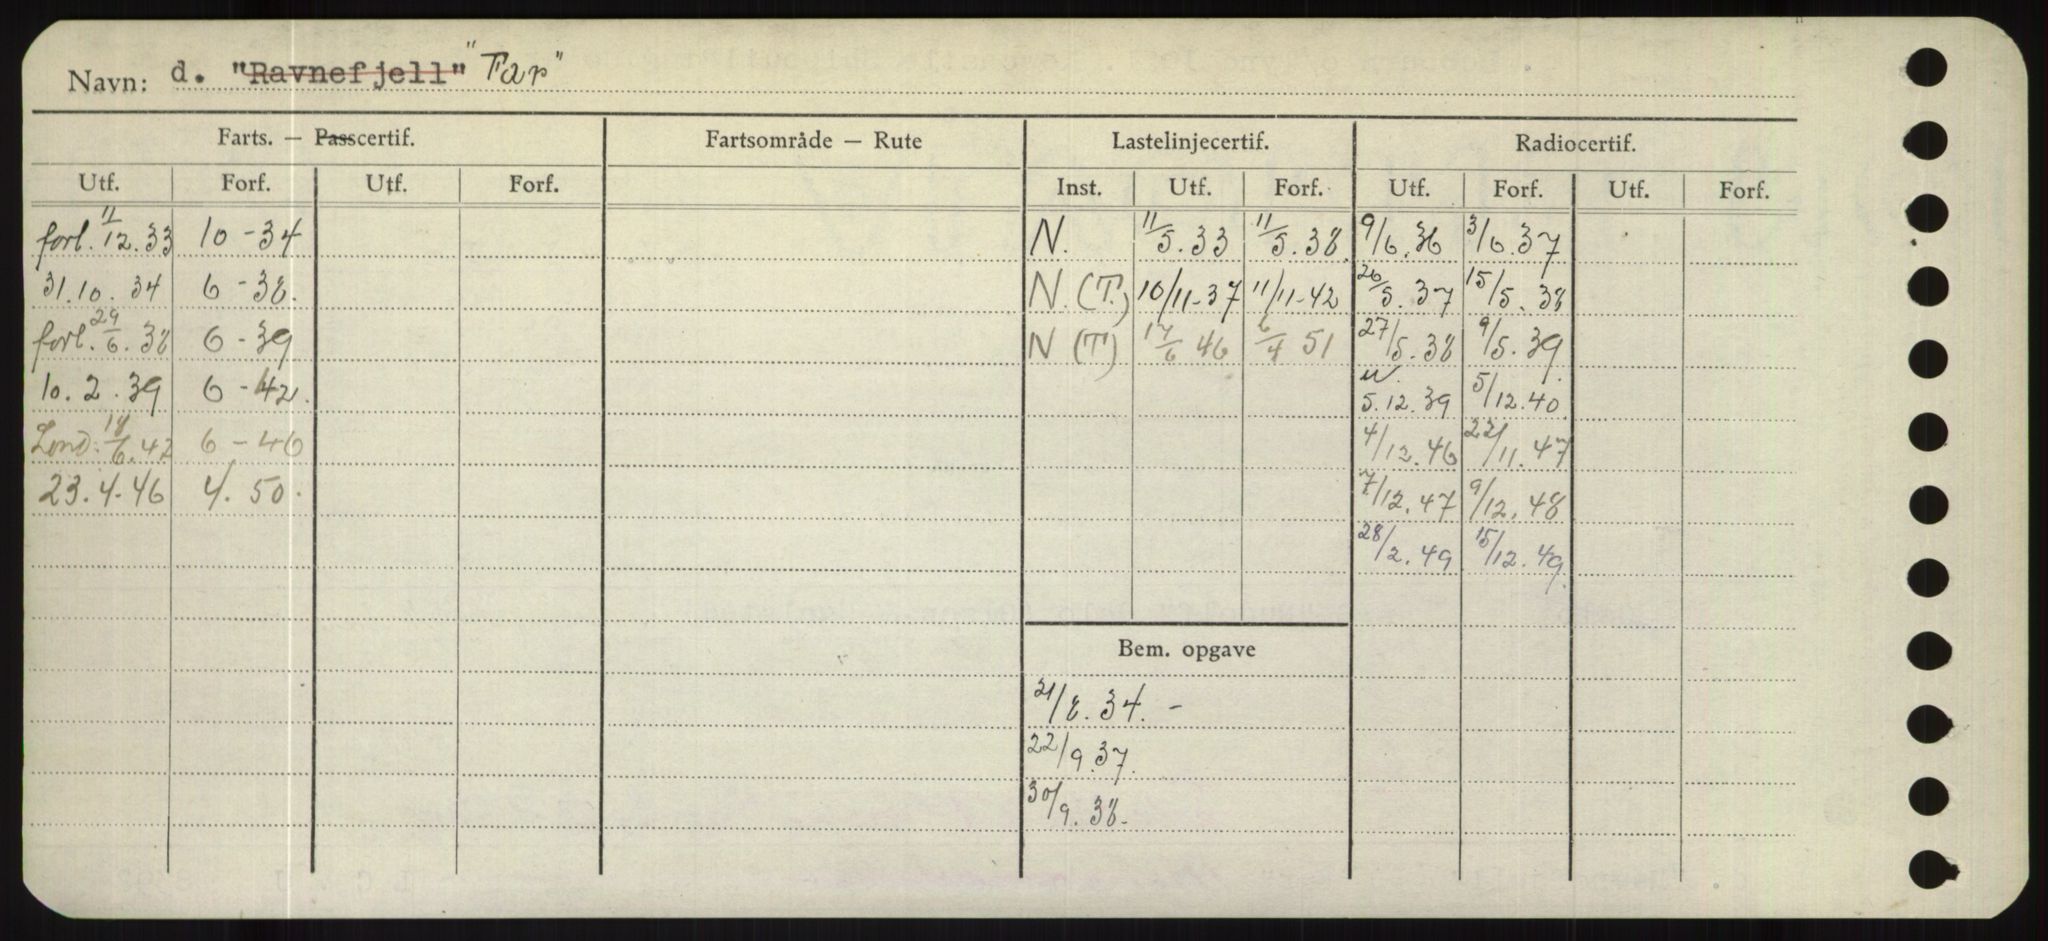 Navn: d. "Ravnefjell" "Far"
Farts. — Passcertif. Fartsområde — Rute Lastelinjecertif. Radiocertif.
Utf. Forf. Utf. Forf. Inst. Utf. Forf. Utf. Forf. Utf. Forf.
forl. 11/12.33 10-34 N. 11/5.33 11/5.38 9/6.36 3/6.37
31.10.34 6-38. N.(T.) 10/11-37 11/11-42 26/5.37 15/5.38
forl. 29/6.38 6-39 N (T) 17/6 46 6/4 51 27/5.38 9/5.39
10.2.39 6-42. 5.12.39 5/12.40
Lond. 18/6.42 6-46 4/12.46 22/11.47
23.4.46 4.50. 7/12.47 9/12.48
28/2.49 15/12.49
Bem. opgave
21/8.34.-
22/9.37.
30/9.38.